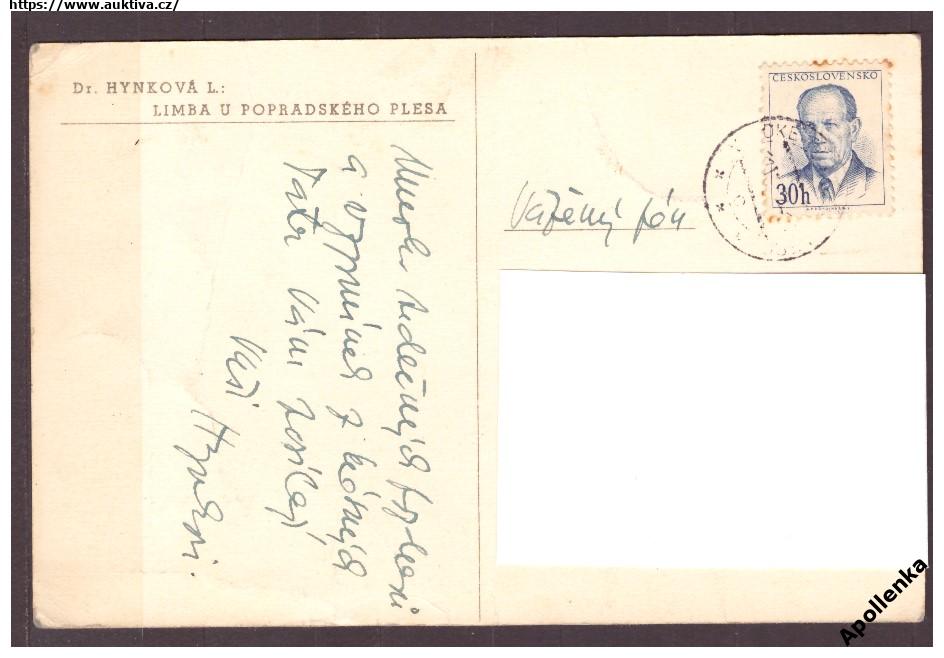 https://www.auktiva.cz/
Dr. HYNKOVÁ L.:
LIMBA U POPRADSKÉHO PLESA
Mnoho srdečných pozdravů
a vzpomínek z krásných
Tater Vám zasílají
Vaši
Hynkovi.
ČESKOSLOVENSKO
30h
Vážený pán
Apollenka